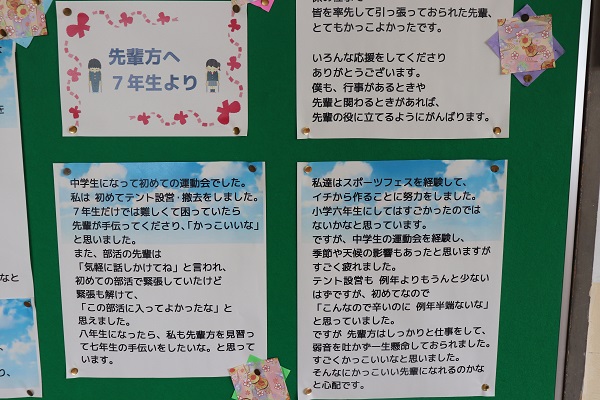 先輩方へ
７年生より
皆を率先して引っ張っておられた先輩、
とてもかっこよかったです。
いろんな応援をしてくださり
ありがとうございます。
僕も、行事があるときや
先輩と関わるときがあれば、
先輩の役に立てるようにがんばります。
中学生になって初めての運動会でした。
私は 初めてテント設営・撤去をしました。
７年生だけでは難しくて困っていたら
先輩が手伝ってくださり、「かっこいいな」
と思いました。
また、部活の先輩は
「気軽に話しかけてね」と言われ、
初めての部活で緊張していたけど
緊張も解けて、
「この部活に入ってよかったな」と
思えました。
八年生になったら、私も先輩方を見習っ
て七年生の手伝いをしたいな。と思って
います。
私達はスポーツフェスを経験して、
イチから作ることに努力をしました。
小学六年生にしてはすごかったのでは
ないかなと思っています。
ですが、中学生の運動会を経験し、
季節や天候の影響もあったと思いますが
すごく疲れました。
テント設営も 例年よりもうんと少ない
はずですが、初めてなので
「こんなので辛いのに 例年半端ないな」
と思っていました。
ですが 先輩方はしっかりと仕事をして、
弱音を吐かず一生懸命しておられました。
すごくかっこいいなと思いました。
そんなにかっこいい先輩になれるのかな
と心配です。